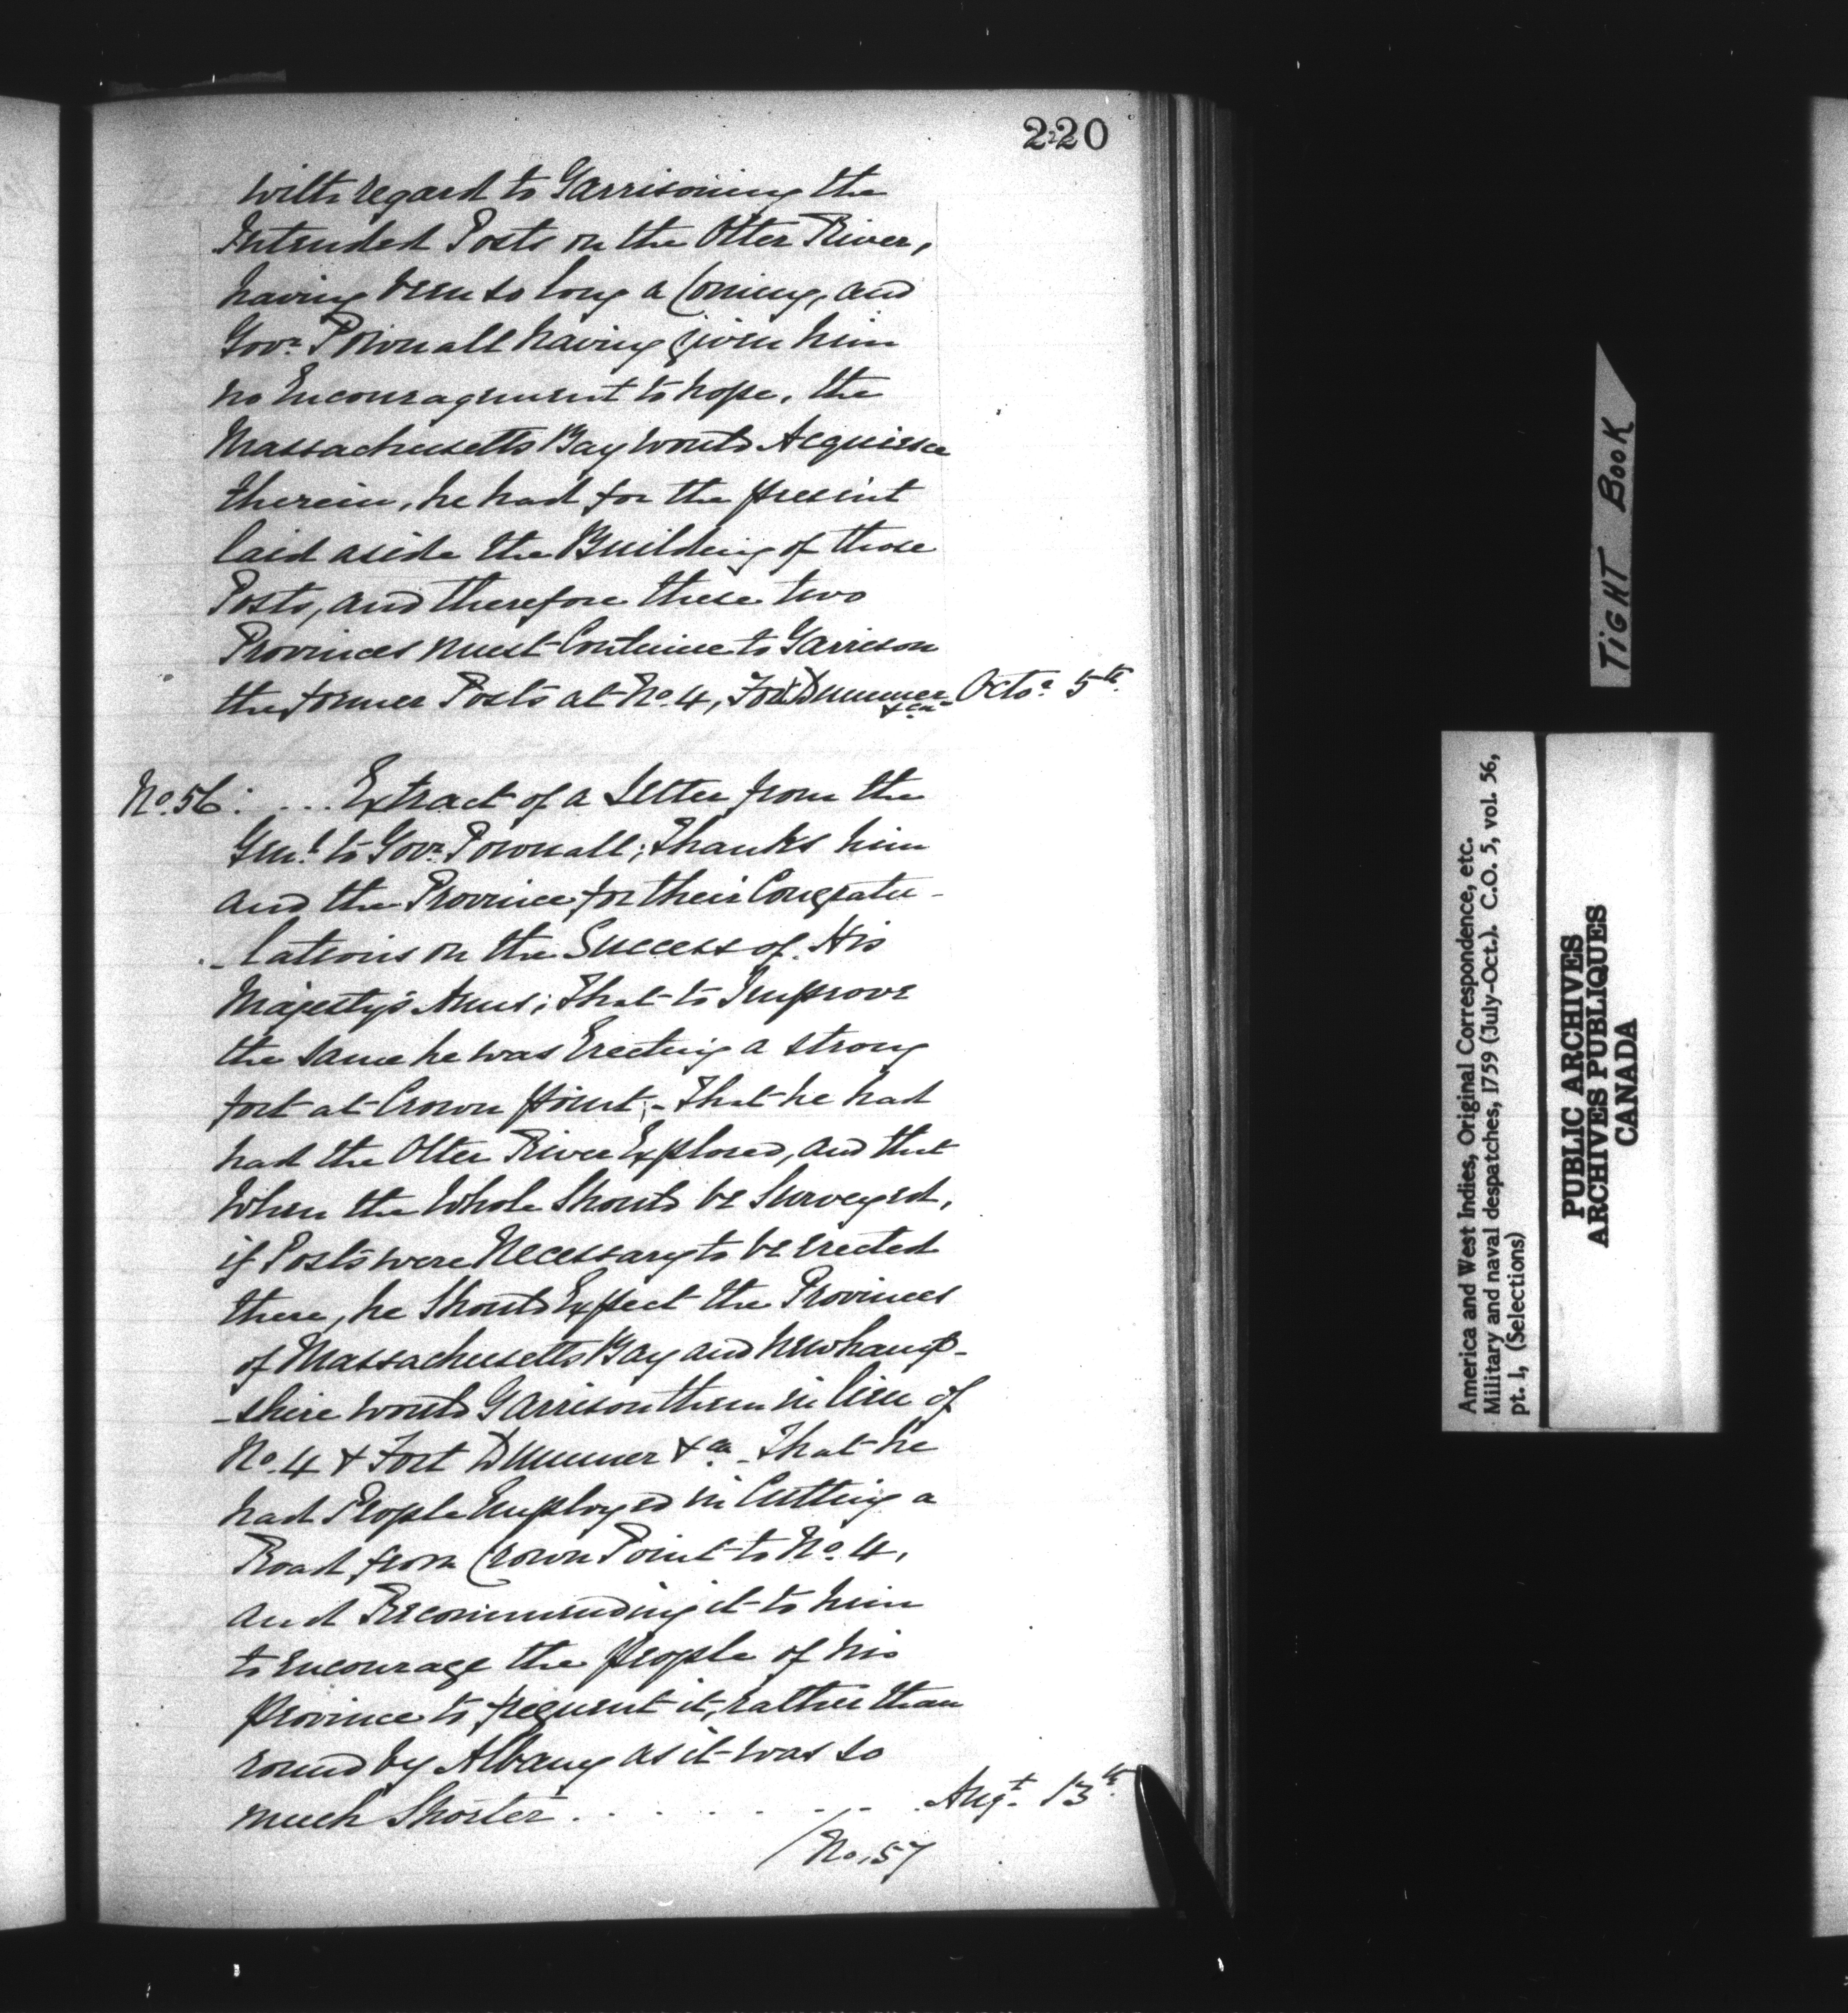 220
with regard to Garrisoning the
Intended Posts on the Otter River,
having been so long a Coming, and
Govr. Pownall having given him
no Encouragement to hope, the
Massachusetts Bay would Acquiesce
therein, he had for the present
laid aside the Building of those
Posts, and therefore these two
Provinces must Continue to Garrison
the former Posts at No. 4, Fort Dummer &ca. Octor. 5th.
No. 56: ... Extract of a Letter from the
Genl. to Govr. Pownall; Thanks him
and the Province for their Congratu-
-lations on the Success of His
Majesty's Arms; That to Improve
the same he was Erecting a strong
fort at Crown point;- That he had
had the Otter River Explored, and that
when the whole Should be Surveyed,
if Posts were Necessary to be erected
there, he Should Expect the Provinces
of Massachusetts Bay and newhamp-
-shire would Garrison them in lieu of
No. 4 & Fort Dummer &ca. - That he
had People Employed in Cutting a
Road from Crown Point to No. 4,
and Recommending it to him
to encourage the people of his
province to frequent it, rather than
round by Albany as it was so
much Shorter. . . . . . . . Augt. 13th.
/No. 57
TIGHT BOOK
America and West Indies, Original Correspondence, etc.
Military and naval despatches, 1759 (July-Oct.). C.O. 5, vol. 56,
pt. 1, (Selections)
PUBLIC ARCHIVES
ARCHIVES PUBLIQUES
CANADA